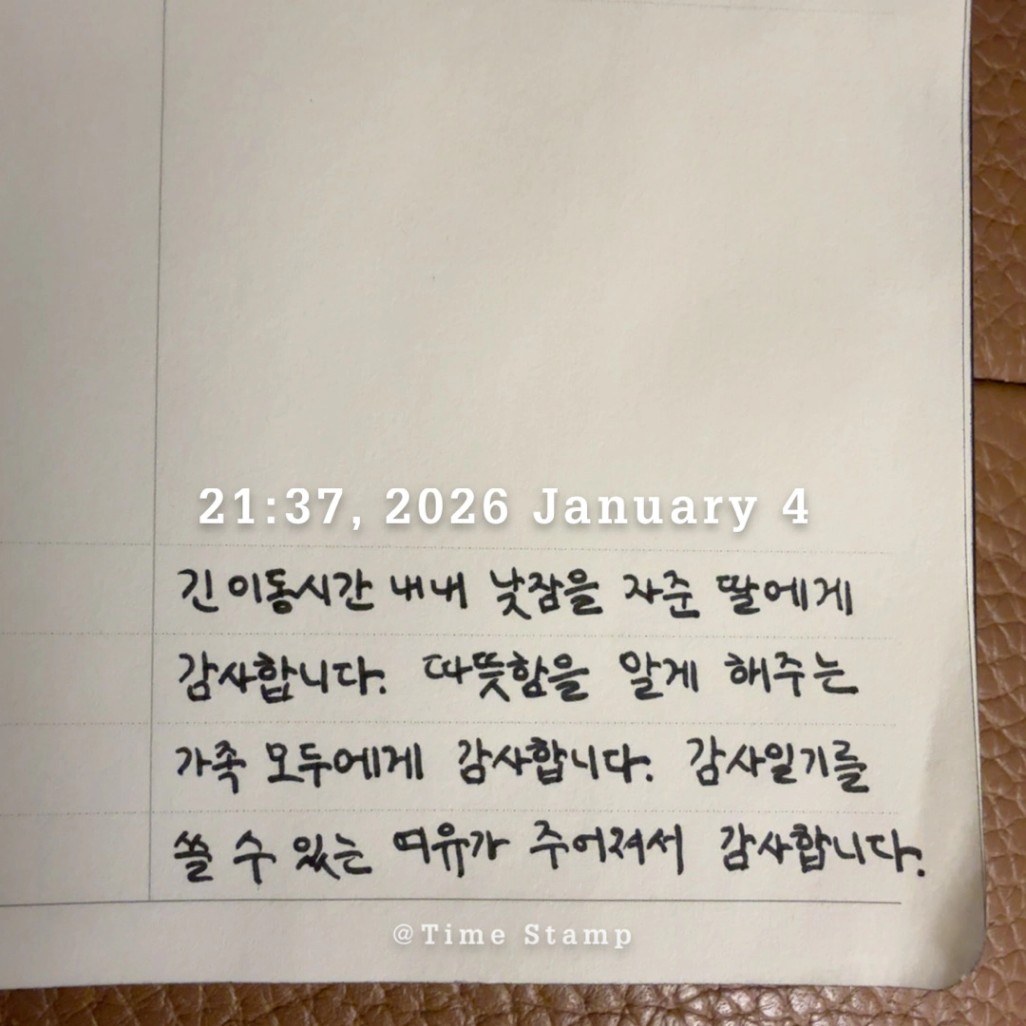 21:37, 2026 January 4
긴 이동시간 내내 낮잠을 자준 딸에게
감사합니다. 따뜻함을 알게 해주는
가족 모두에게 감사합니다. 감사일기를
쓸 수 있는 여유가 주어져서 감사합니다.
@Time Stamp